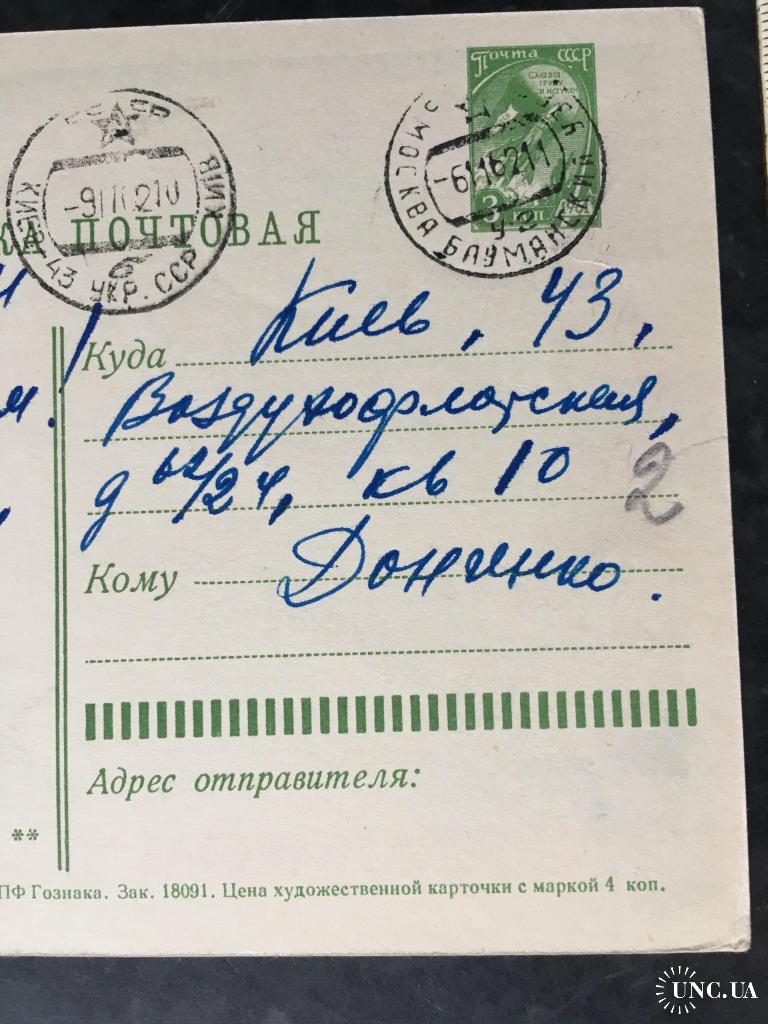 Почта СССР
СЛАВА
ТРУДУ
И НАУКЕ
3 коп
МОСКВА БАУМАНСКИЙ
-6116211
УФ
КИЕВ-43 УКР. ССР
КИЇВ
-9111 6210
б
КА ПОЧТОВАЯ
Куда Киев, 43,
Воздухофлотская,
д 62/24, кв 10
2
Кому Донченко.
Адрес отправителя:
**
ПФ Гознака. Зак. 18091. Цена художественной карточки с маркой 4 коп.
UNC.UA